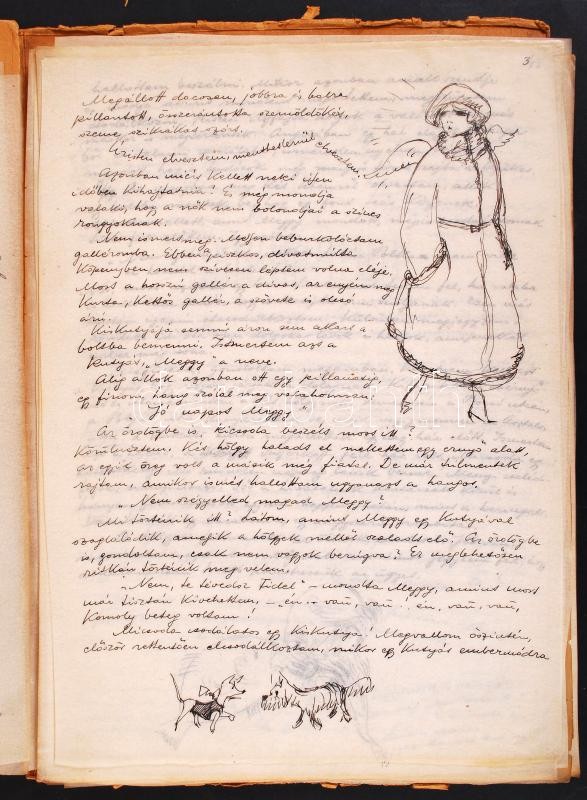 3
Megállott dacosan, jobbra és balra
pillantott, összerántotta szemöldökét,
szeme szikrákat szórt.
Úristen elvesztem, menthetetlenül elvesztem!
Azonban miért kellett neki ilyen
időben kihajtatnia? És még mondja
valaki, hogy a nők nem bolondjai a színes
rongyoknak.
Nem ismert meg. Mélyen beburkolóztam
galléromba. Ebben a piszkos, divatmúlta
köpenyben nem szívesen léptem volna eléje.
Most a hosszú gallér a divat, az enyém meg
kurta, kettős gallér, a szövete is olcsó
árú.
Kiskutyája semmi áron sem akart a
boltba bemenni. Ismertem ezt a
kutyát, "Meggy" a neve.
Alig állok azonban ott egy pillanatig,
egy finom hang szólal meg valahonnan:
"Jó napot Meggy"
Az ördögbe is, kicsoda beszélt most itt?
Körülnéztem. Két hölgy haladt el mellettem egy ernyő alatt,
az egyik öreg volt a másik még fiatal. De már túlmentek
rajtam, amikor ismét hallottam ugyanazt a hangot.
"Nem szégyelled magad Meggy?
Mi történik itt? Látom, amint Meggy egy kutyával
szaglálódik, amelyik a hölgyek mellől szaladt elő. Az ördögbe
is, gondoltam, csak nem vagyok berúgva? Ez meglehetősen
ritkán történik meg velem.
"Nem, te tévedsz Fidel" – mondta Meggy, amint most
már tisztán kivehettem, – én .. vau, vau .. én, vau, vau,
komoly beteg voltam!
Micsoda csodálatos egy kiskutya! Megvallom őszintén,
először rettentően elcsodálkoztam, mikor egy kutyát embermódra